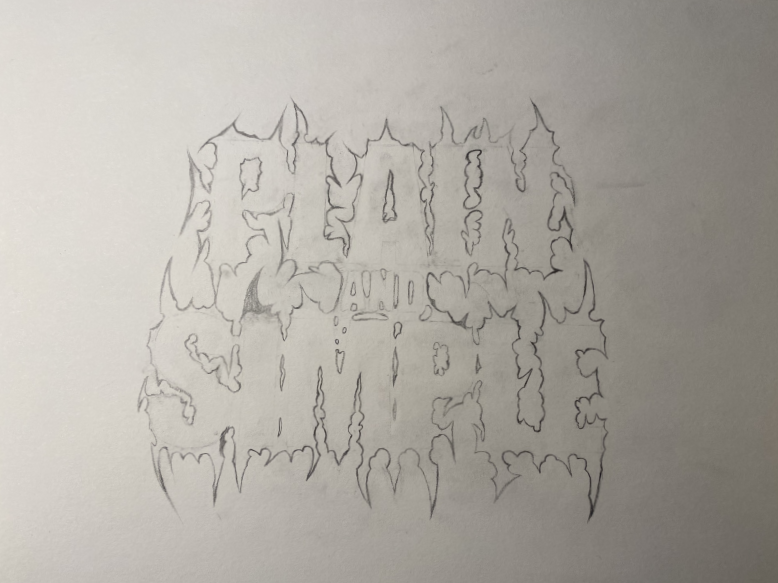 PLAIN
AND
SIMPLE